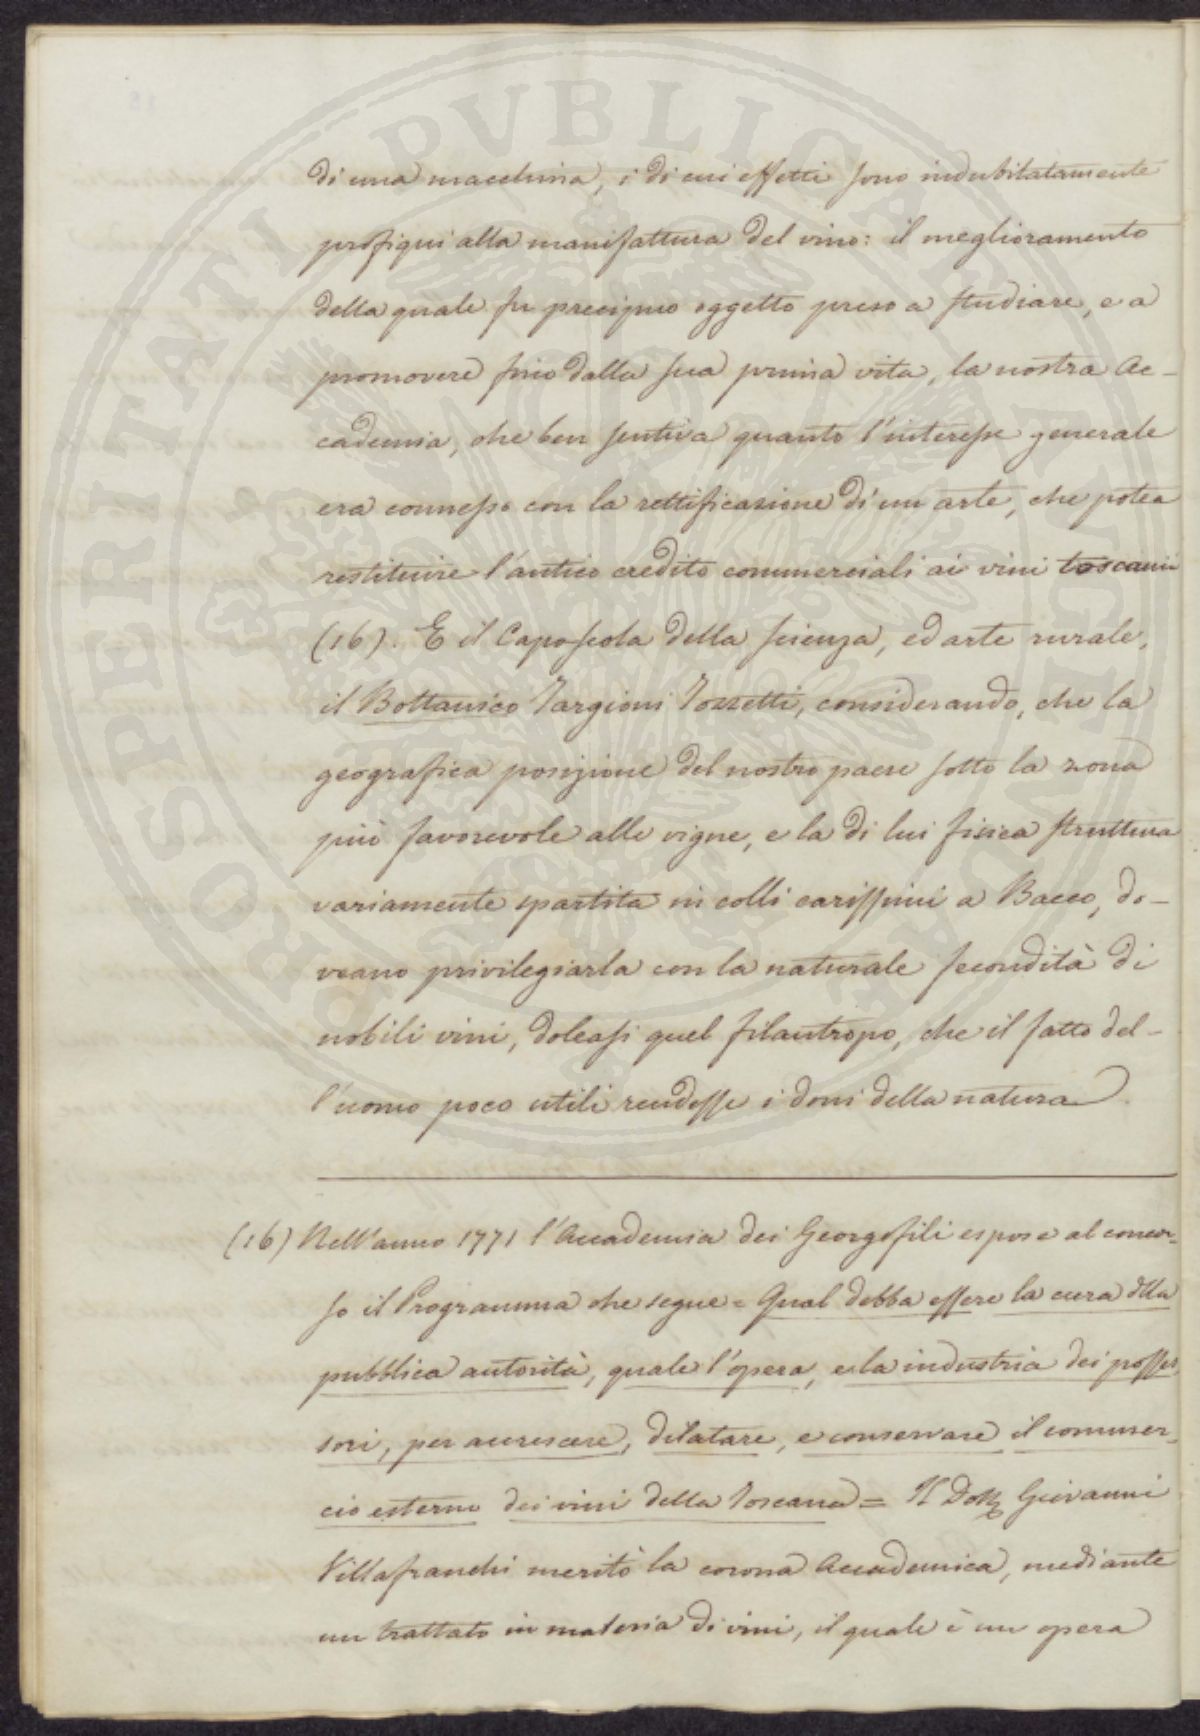 di una macchina, i di cui effetti sono indubitatamente
profiqui alla manifattura del vino: il meglioramento
della quale fu precipuo oggetto preso a studiare, e a
promovere fino dalla sua prima vita, la nostra Ac-
cademia, che ben sentiva quanto l'interesse generale
era connesso con la rettificazione di un arte, che potea
restituire l'antico credito commerciali ai vini toscani
(16). E il Caposcola della scienza, ed arte rurale,
il Bottanico Targioni Tozzetti, considerando, che la
geografica posizione del nostro paese sotto la zona
più favorevole alle vigne, e la di lui fisica struttura
variamente spartita in colli carissimi a Bacco, do-
veano privilegiarla con la naturale fecondità di
nobili vini, doleasi quel filantropo, che il fatto del-
l'uomo poco utili rendesse i doni della natura.
(16) Nell'anno 1771 l'Accademia dei Georgofili espose al concor-
so il Programma che segue = Qual debba essere la cura della
pubblica autorità, quale l'opera, e la industria dei posses
sori, per accrescere, dilatare, e conservare il commer-
cio esterno dei vini della Toscana = Il Dott Giovanni
Villafranchi meritò la corona Accademica, mediante
un trattato in materia di vini, il quale è un opera
PROSPERITATI PUBLICAE AUGENDAE